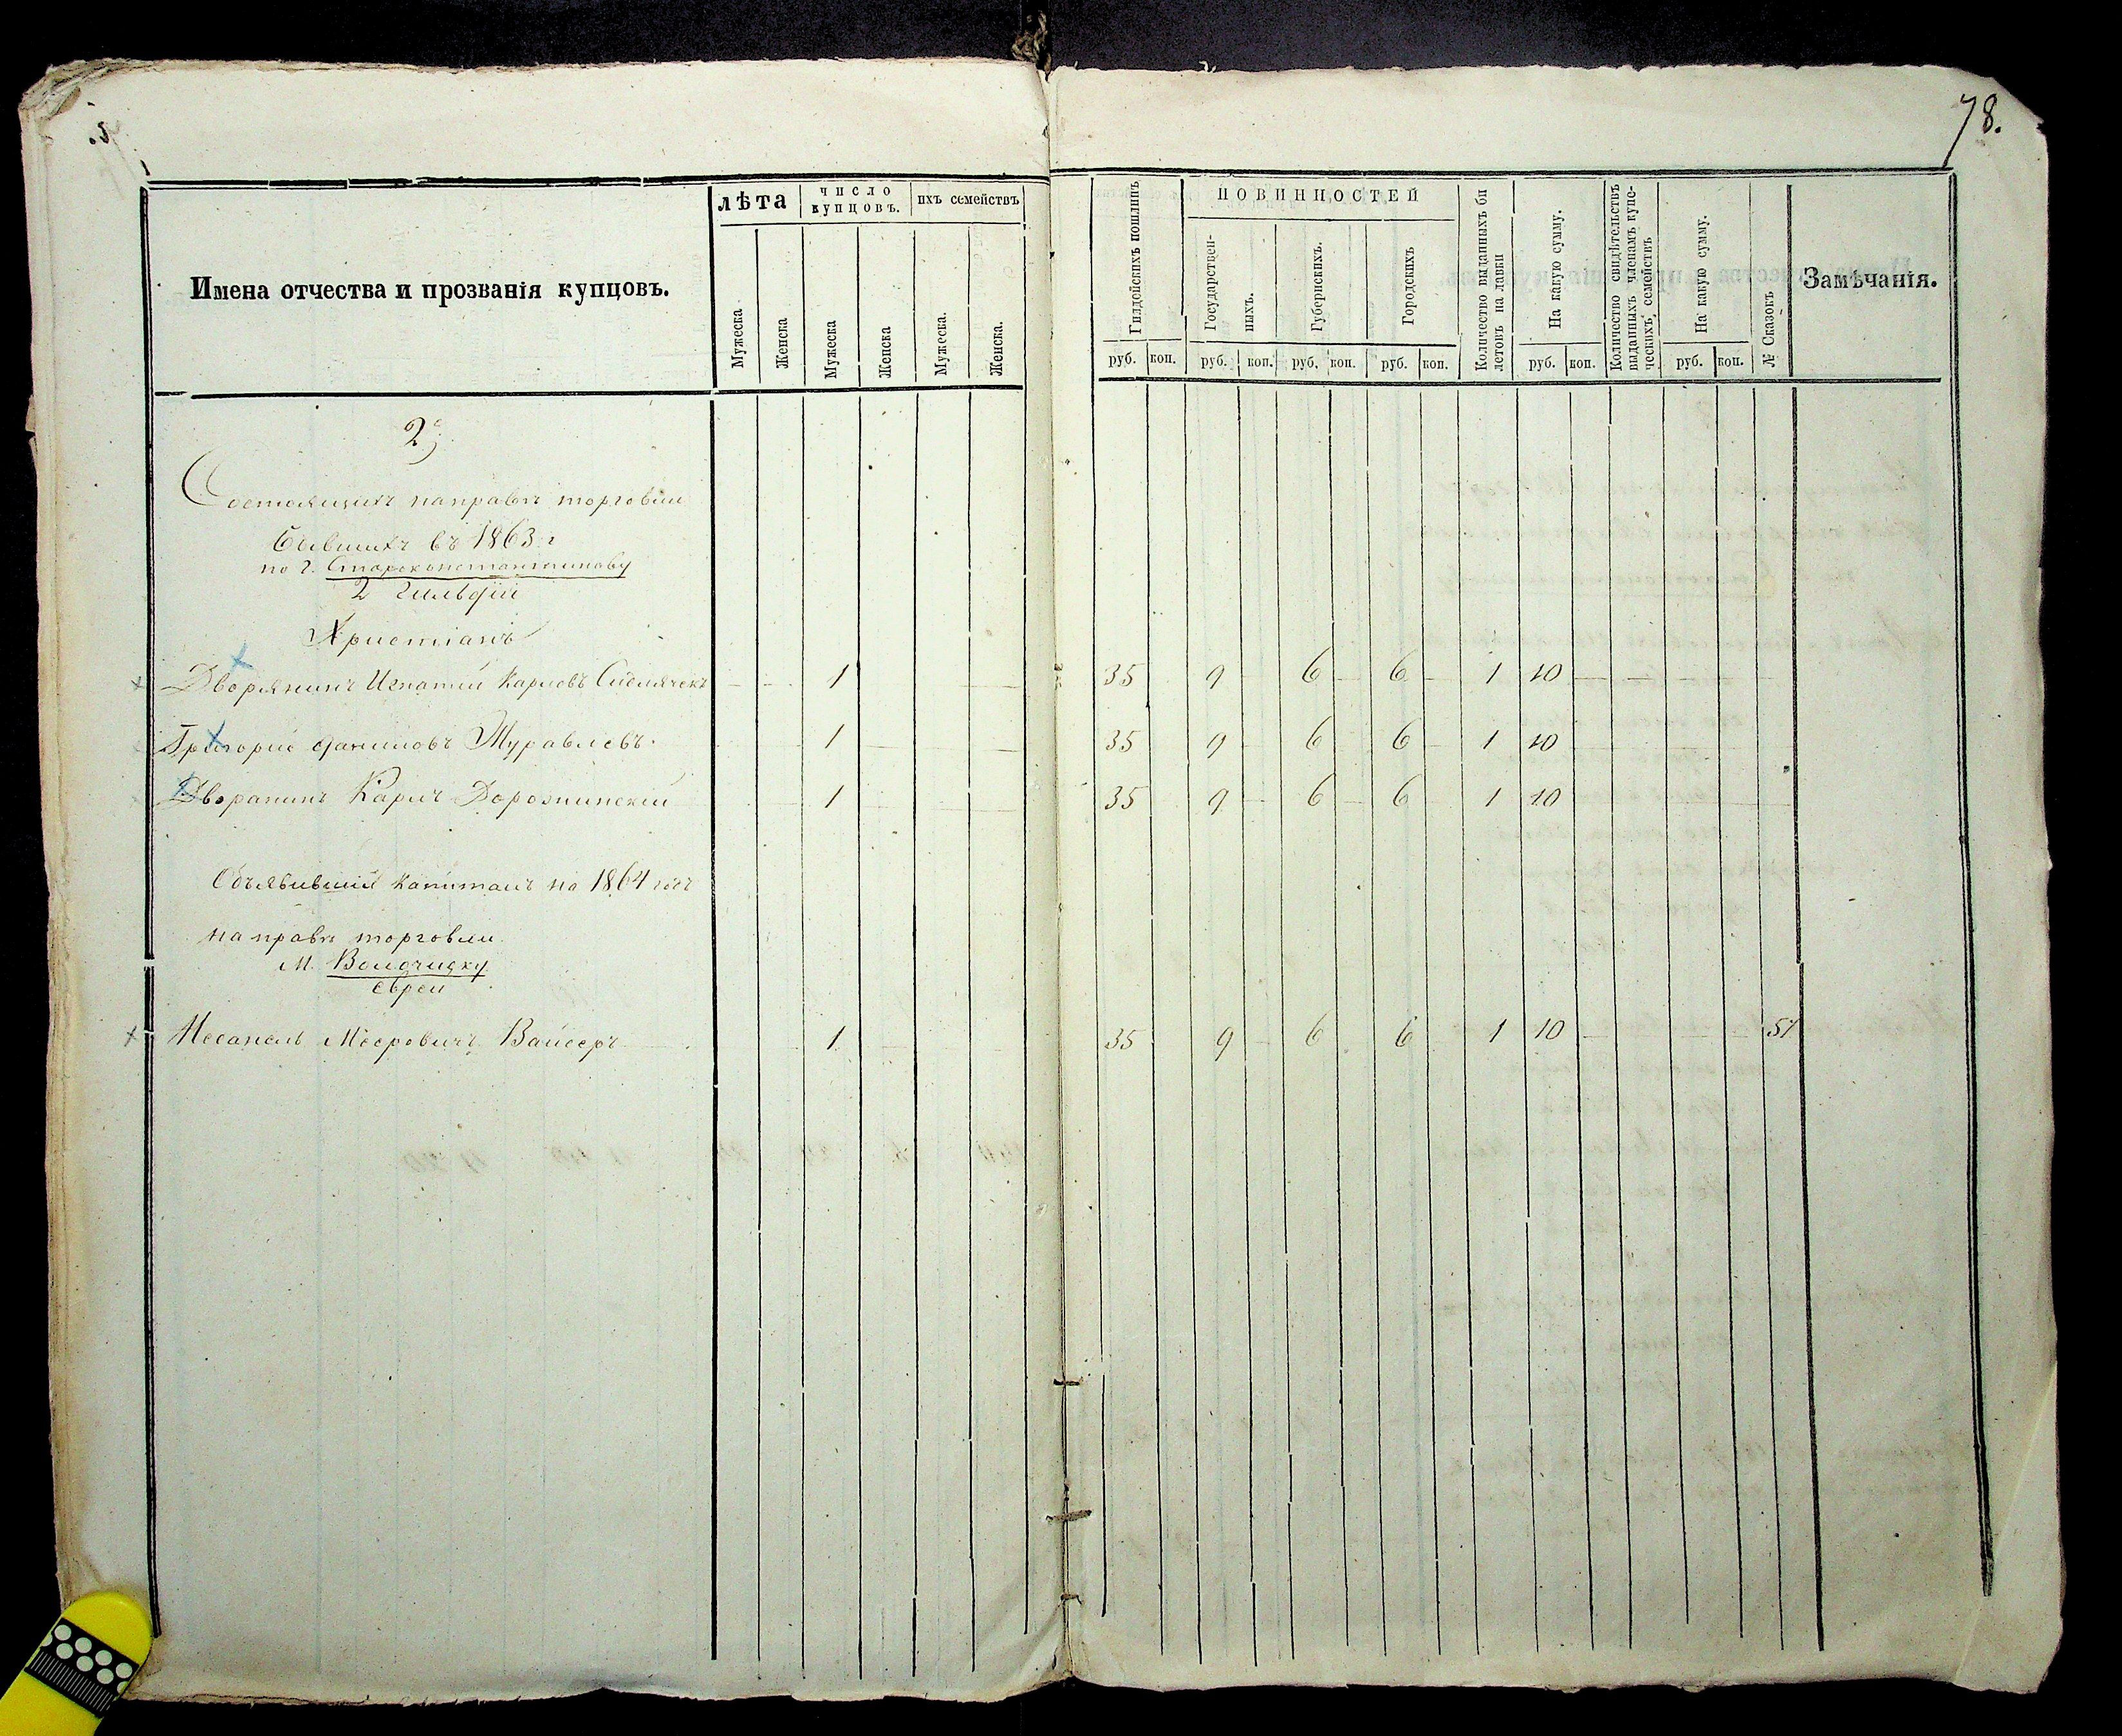 78.
Имена отчества и прозванія купцовъ.
лѣта
число купцовъ.
ихъ семействъ
Мужеска
Женска
Мужеска
Женска
Мужеска.
Женска.
Гилдейскихъ пошлинъ
ПОВИННОСТЕЙ
Государственныхъ.
Губернскихъ.
Городскихъ
Количество выданныхъ билетовъ на лавки
На какую сумму.
Количество свидѣтельствъ выданныхъ членамъ купеческихъ семействъ
На какую сумму.
№ Сказокъ
Замѣчанія.
руб. коп. руб. коп. руб. коп. руб. коп. руб. коп. руб. коп.
2)
Состоящихъ направѣ торговли
бывшихъ въ 1863 г
по г. Староконстантинову
2 Гильдіи
Христіанъ
Дворянинъ Игнатій Карловъ 1 35 9 6 6 1 10
Григорій Даниловъ Журавлевъ 1 35 9 6 6 1 10
Дворанинъ Карлъ Дорожинскій 1 35 9 6 6 1 10
Объявившій капиталъ на 1864 годъ
на правѣ торговли
М. Волочиску
Евреи
Месанель Мееровичъ Вайсеръ 1 35 9 6 6 1 10 57